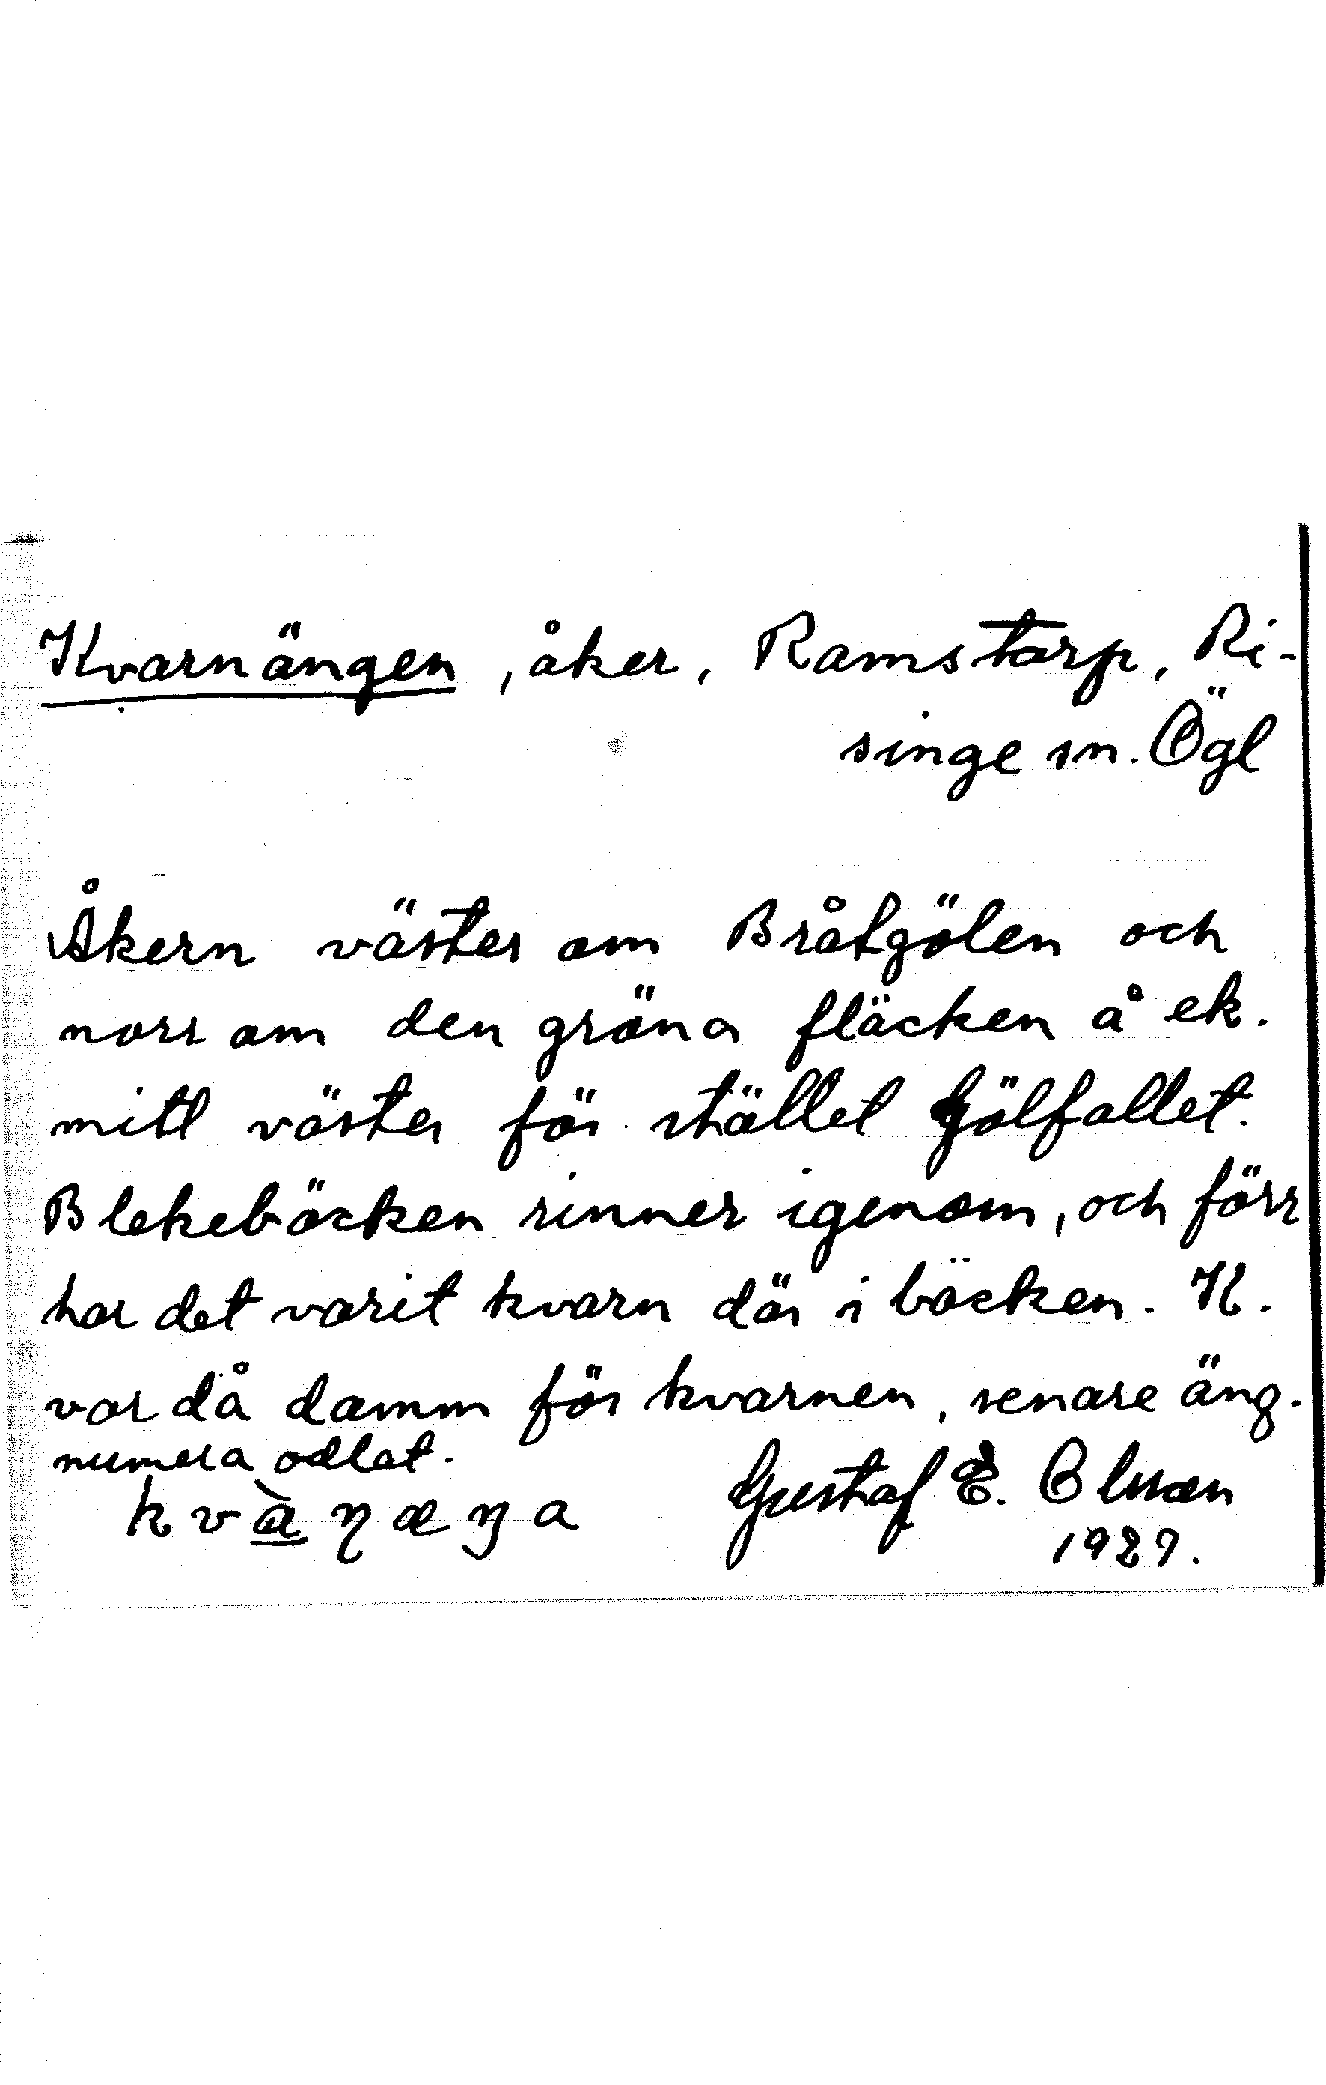 Kvarnängen, åker, Ramstorp, Ri-
singe sn. Ögl
Åkern väster om Bråtgölen och
norr om den gröna fläcken å ek.
mitt väster för stället Gölfallet.
Blekebäcken rinner igenom, och förr
har det varit kvarn där i bäcken. K.
var då damm för kvarnen, senare äng.
numera odlat.
kvàꞃæŋa
Gustaf E. Olsson
1927.